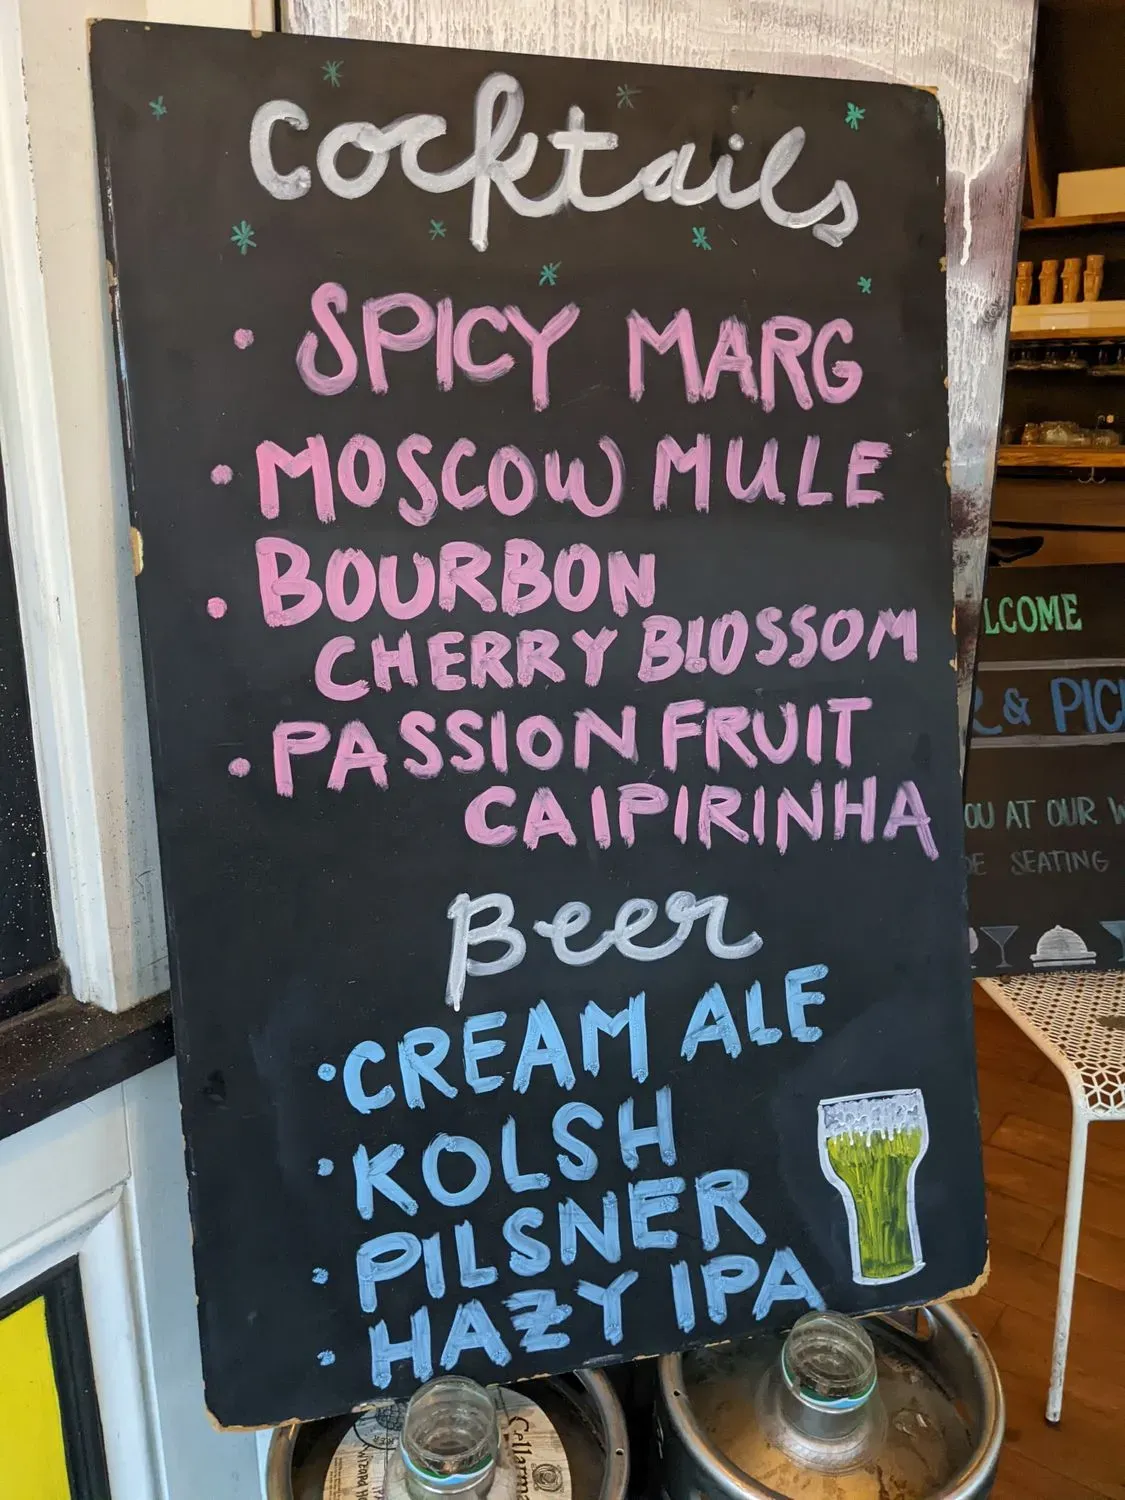 Cocktails
• SPICY MARG
• MOSCOW MULE
• BOURBON
CHERRY BLOSSOM
• PASSION FRUIT
CAIPIRINHA
Beer
• CREAM ALE
• KOLSH
• PILSNER
• HAZY IPA
LCOME
& PIC
OU AT OUR W
SEATING
Cellarma